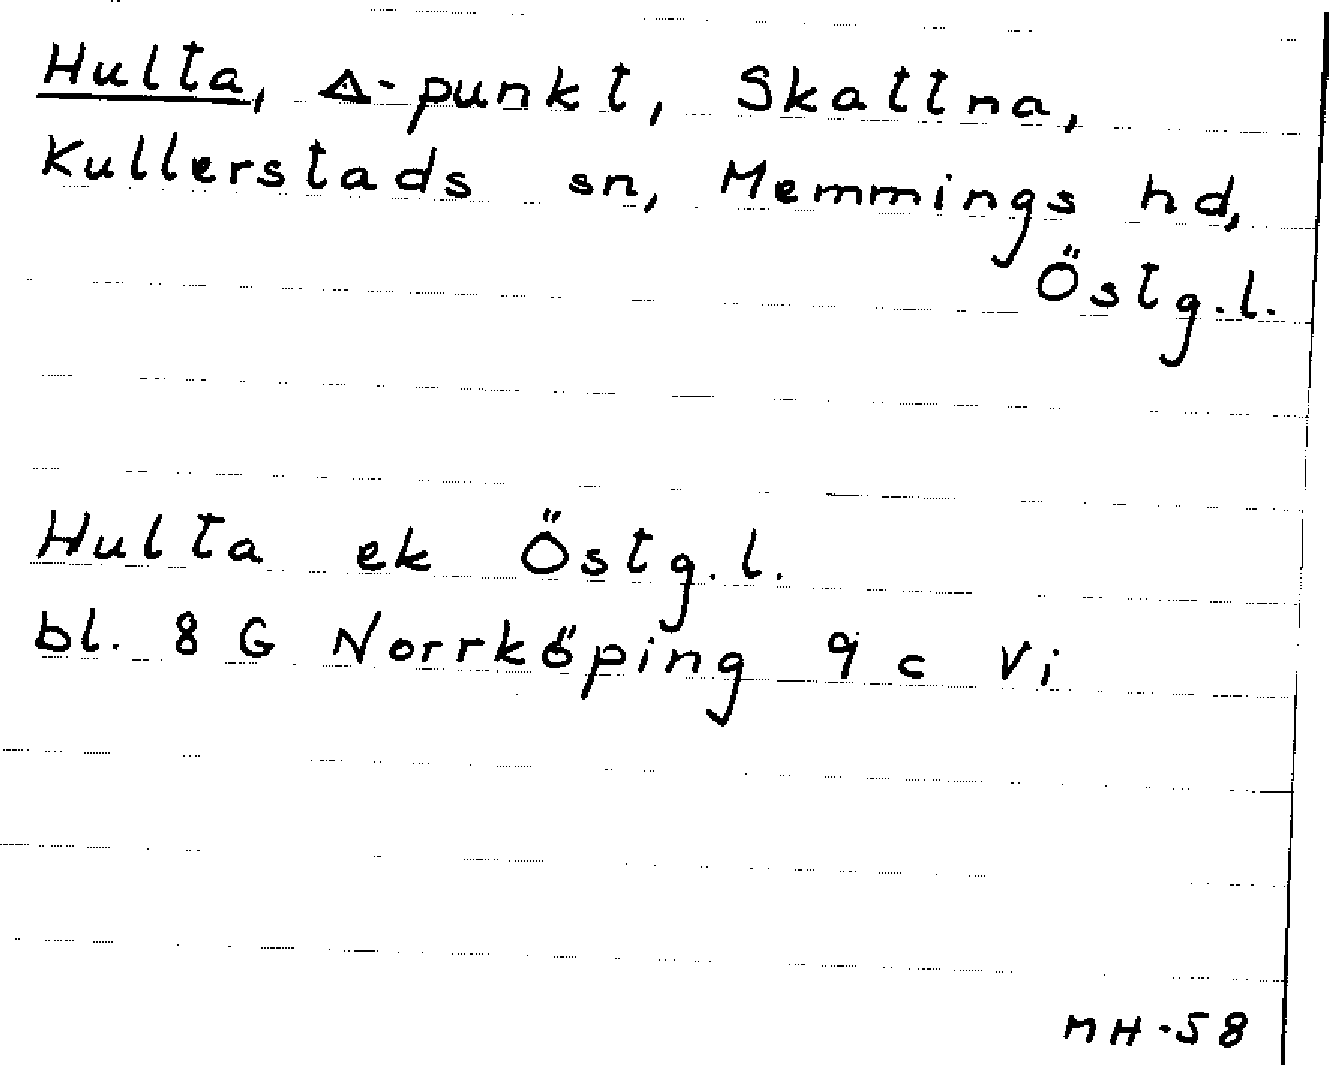 Hulta, Δ-punkt, Skattna,
Kullerstads sn, Memmings hd,
Östg.l.
Hulta ek Östg.l.
bl. 8 G Norrköping 9 c Vi
MH-58